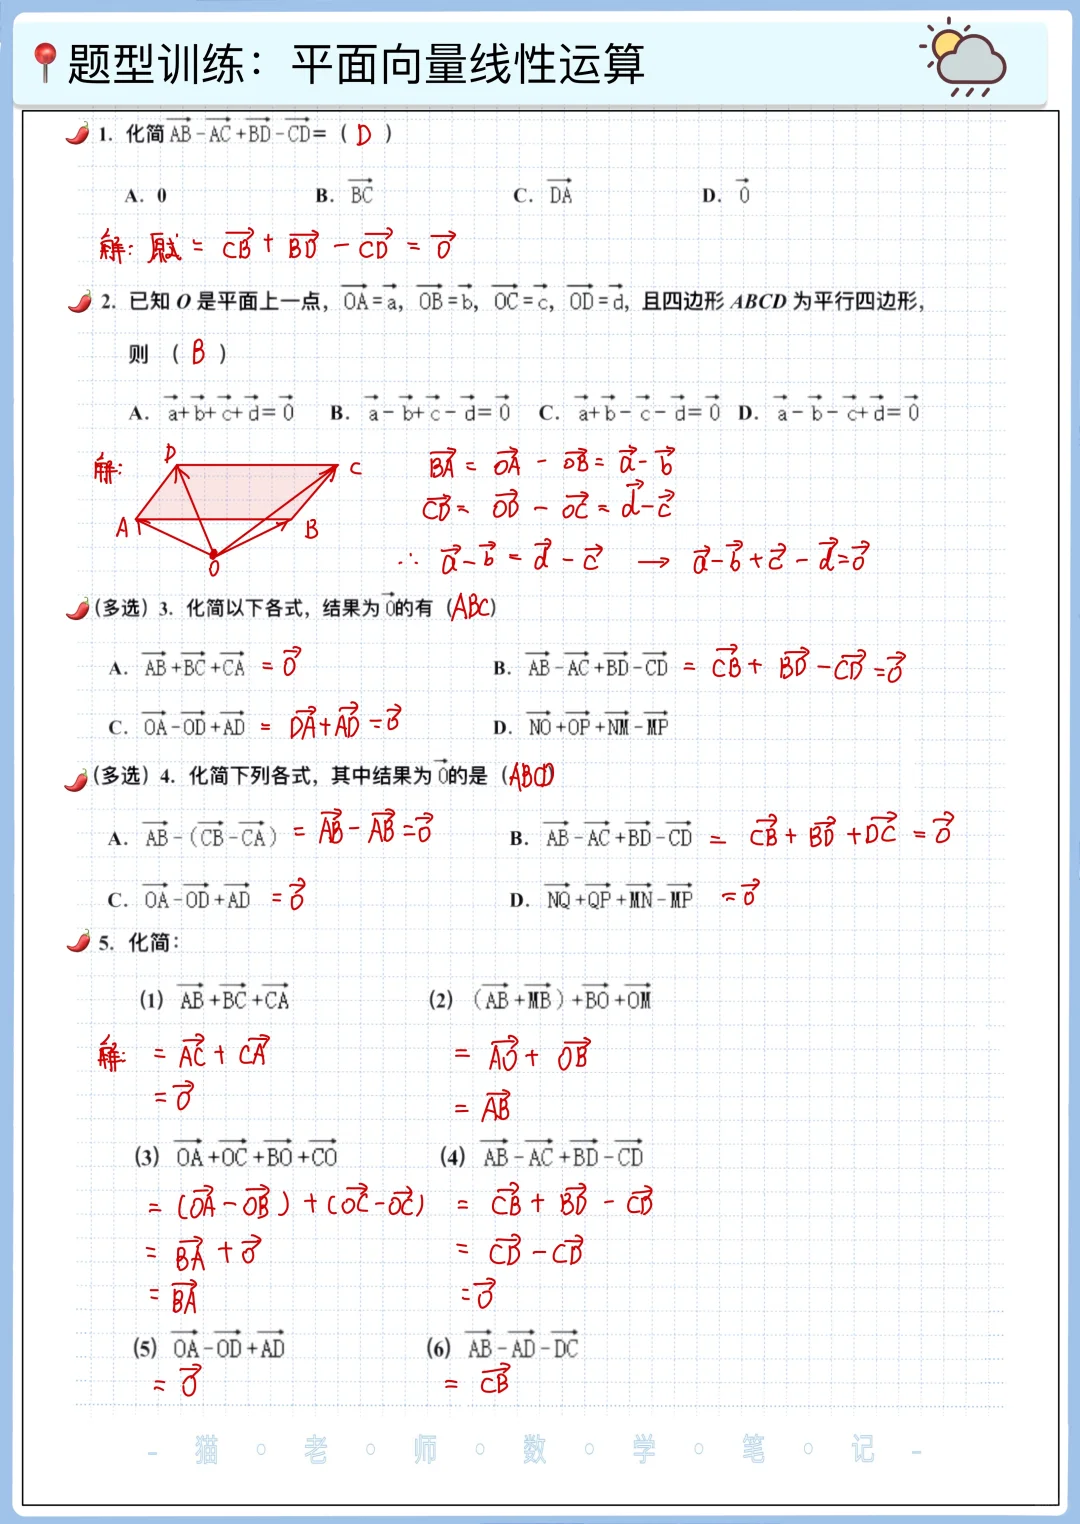 题型训练：平面向量线性运算
1. 化简 $\overrightarrow{AB}-\overrightarrow{AC}+\overrightarrow{BD}-\overrightarrow{CD}$=（ D ）
A. 0  B. $\overrightarrow{BC}$  C. $\overrightarrow{DA}$  D. $\vec{0}$
解：原式 = $\overrightarrow{CB}+\overrightarrow{BD}-\overrightarrow{CD}=\vec{0}$
2. 已知 O 是平面上一点，$\overrightarrow{OA}=\vec{a}$，$\overrightarrow{OB}=\vec{b}$，$\overrightarrow{OC}=\vec{c}$，$\overrightarrow{OD}=\vec{d}$，且四边形 ABCD 为平行四边形，
则 （ B ）
A. $\vec{a}+\vec{b}+\vec{c}+\vec{d}=\vec{0}$  B. $\vec{a}-\vec{b}+\vec{c}-\vec{d}=\vec{0}$  C. $\vec{a}+\vec{b}-\vec{c}-\vec{d}=\vec{0}$  D. $\vec{a}-\vec{b}-\vec{c}+\vec{d}=\vec{0}$
解：
D C
A B
O
$\overrightarrow{BA}=\overrightarrow{OA}-\overrightarrow{OB}=\vec{a}-\vec{b}$
$\overrightarrow{CD}=\overrightarrow{OD}-\overrightarrow{OC}=\vec{d}-\vec{c}$
∴ $\vec{a}-\vec{b}=\vec{d}-\vec{c}$ → $\vec{a}-\vec{b}+\vec{c}-\vec{d}=\vec{0}$
（多选）3. 化简以下各式，结果为 $\vec{0}$的有（ABC）
A. $\overrightarrow{AB}+\overrightarrow{BC}+\overrightarrow{CA}$ = $\vec{0}$  B. $\overrightarrow{AB}-\overrightarrow{AC}+\overrightarrow{BD}-\overrightarrow{CD}$ = $\overrightarrow{CB}+\overrightarrow{BD}-\overrightarrow{CD}=\vec{0}$
C. $\overrightarrow{OA}-\overrightarrow{OD}+\overrightarrow{AD}$ = $\overrightarrow{DA}+\overrightarrow{AD}=\vec{0}$  D. $\overrightarrow{NO}+\overrightarrow{OP}+\overrightarrow{NM}-\overrightarrow{MP}$
（多选）4. 化简下列各式，其中结果为 $\vec{0}$的是（ABCD）
A. $\overrightarrow{AB}-（\overrightarrow{CB}-\overrightarrow{CA}）$ = $\overrightarrow{AB}-\overrightarrow{AB}=\vec{0}$  B. $\overrightarrow{AB}-\overrightarrow{AC}+\overrightarrow{BD}-\overrightarrow{CD}$ = $\overrightarrow{CB}+\overrightarrow{BD}+\overrightarrow{DC}=\vec{0}$
C. $\overrightarrow{OA}-\overrightarrow{OD}+\overrightarrow{AD}$ = $\vec{0}$  D. $\overrightarrow{NQ}+\overrightarrow{QP}+\overrightarrow{MN}-\overrightarrow{MP}$ = $\vec{0}$
5. 化简：
（1）$\overrightarrow{AB}+\overrightarrow{BC}+\overrightarrow{CA}$  （2）（$\overrightarrow{AB}+\overrightarrow{MB}$）$+\overrightarrow{BO}+\overrightarrow{OM}$
解： = $\overrightarrow{AC}+\overrightarrow{CA}$  = $\overrightarrow{AO}+\overrightarrow{OB}$
= $\vec{0}$  = $\overrightarrow{AB}$
（3）$\overrightarrow{OA}+\overrightarrow{OC}+\overrightarrow{BO}+\overrightarrow{CO}$  （4）$\overrightarrow{AB}-\overrightarrow{AC}+\overrightarrow{BD}-\overrightarrow{CD}$
= $(\overrightarrow{OA}-\overrightarrow{OB})+(\overrightarrow{OC}-\overrightarrow{OC})$  = $\overrightarrow{CB}+\overrightarrow{BD}-\overrightarrow{CD}$
= $\overrightarrow{BA}+\vec{0}$  = $\overrightarrow{CD}-\overrightarrow{CD}$
= $\overrightarrow{BA}$  = $\vec{0}$
（5）$\overrightarrow{OA}-\overrightarrow{OD}+\overrightarrow{AD}$  （6）$\overrightarrow{AB}-\overrightarrow{AD}-\overrightarrow{DC}$
= $\vec{0}$  = $\overrightarrow{CB}$
- 猫 · 老 · 师 · 数 · 学 · 笔 · 记 -